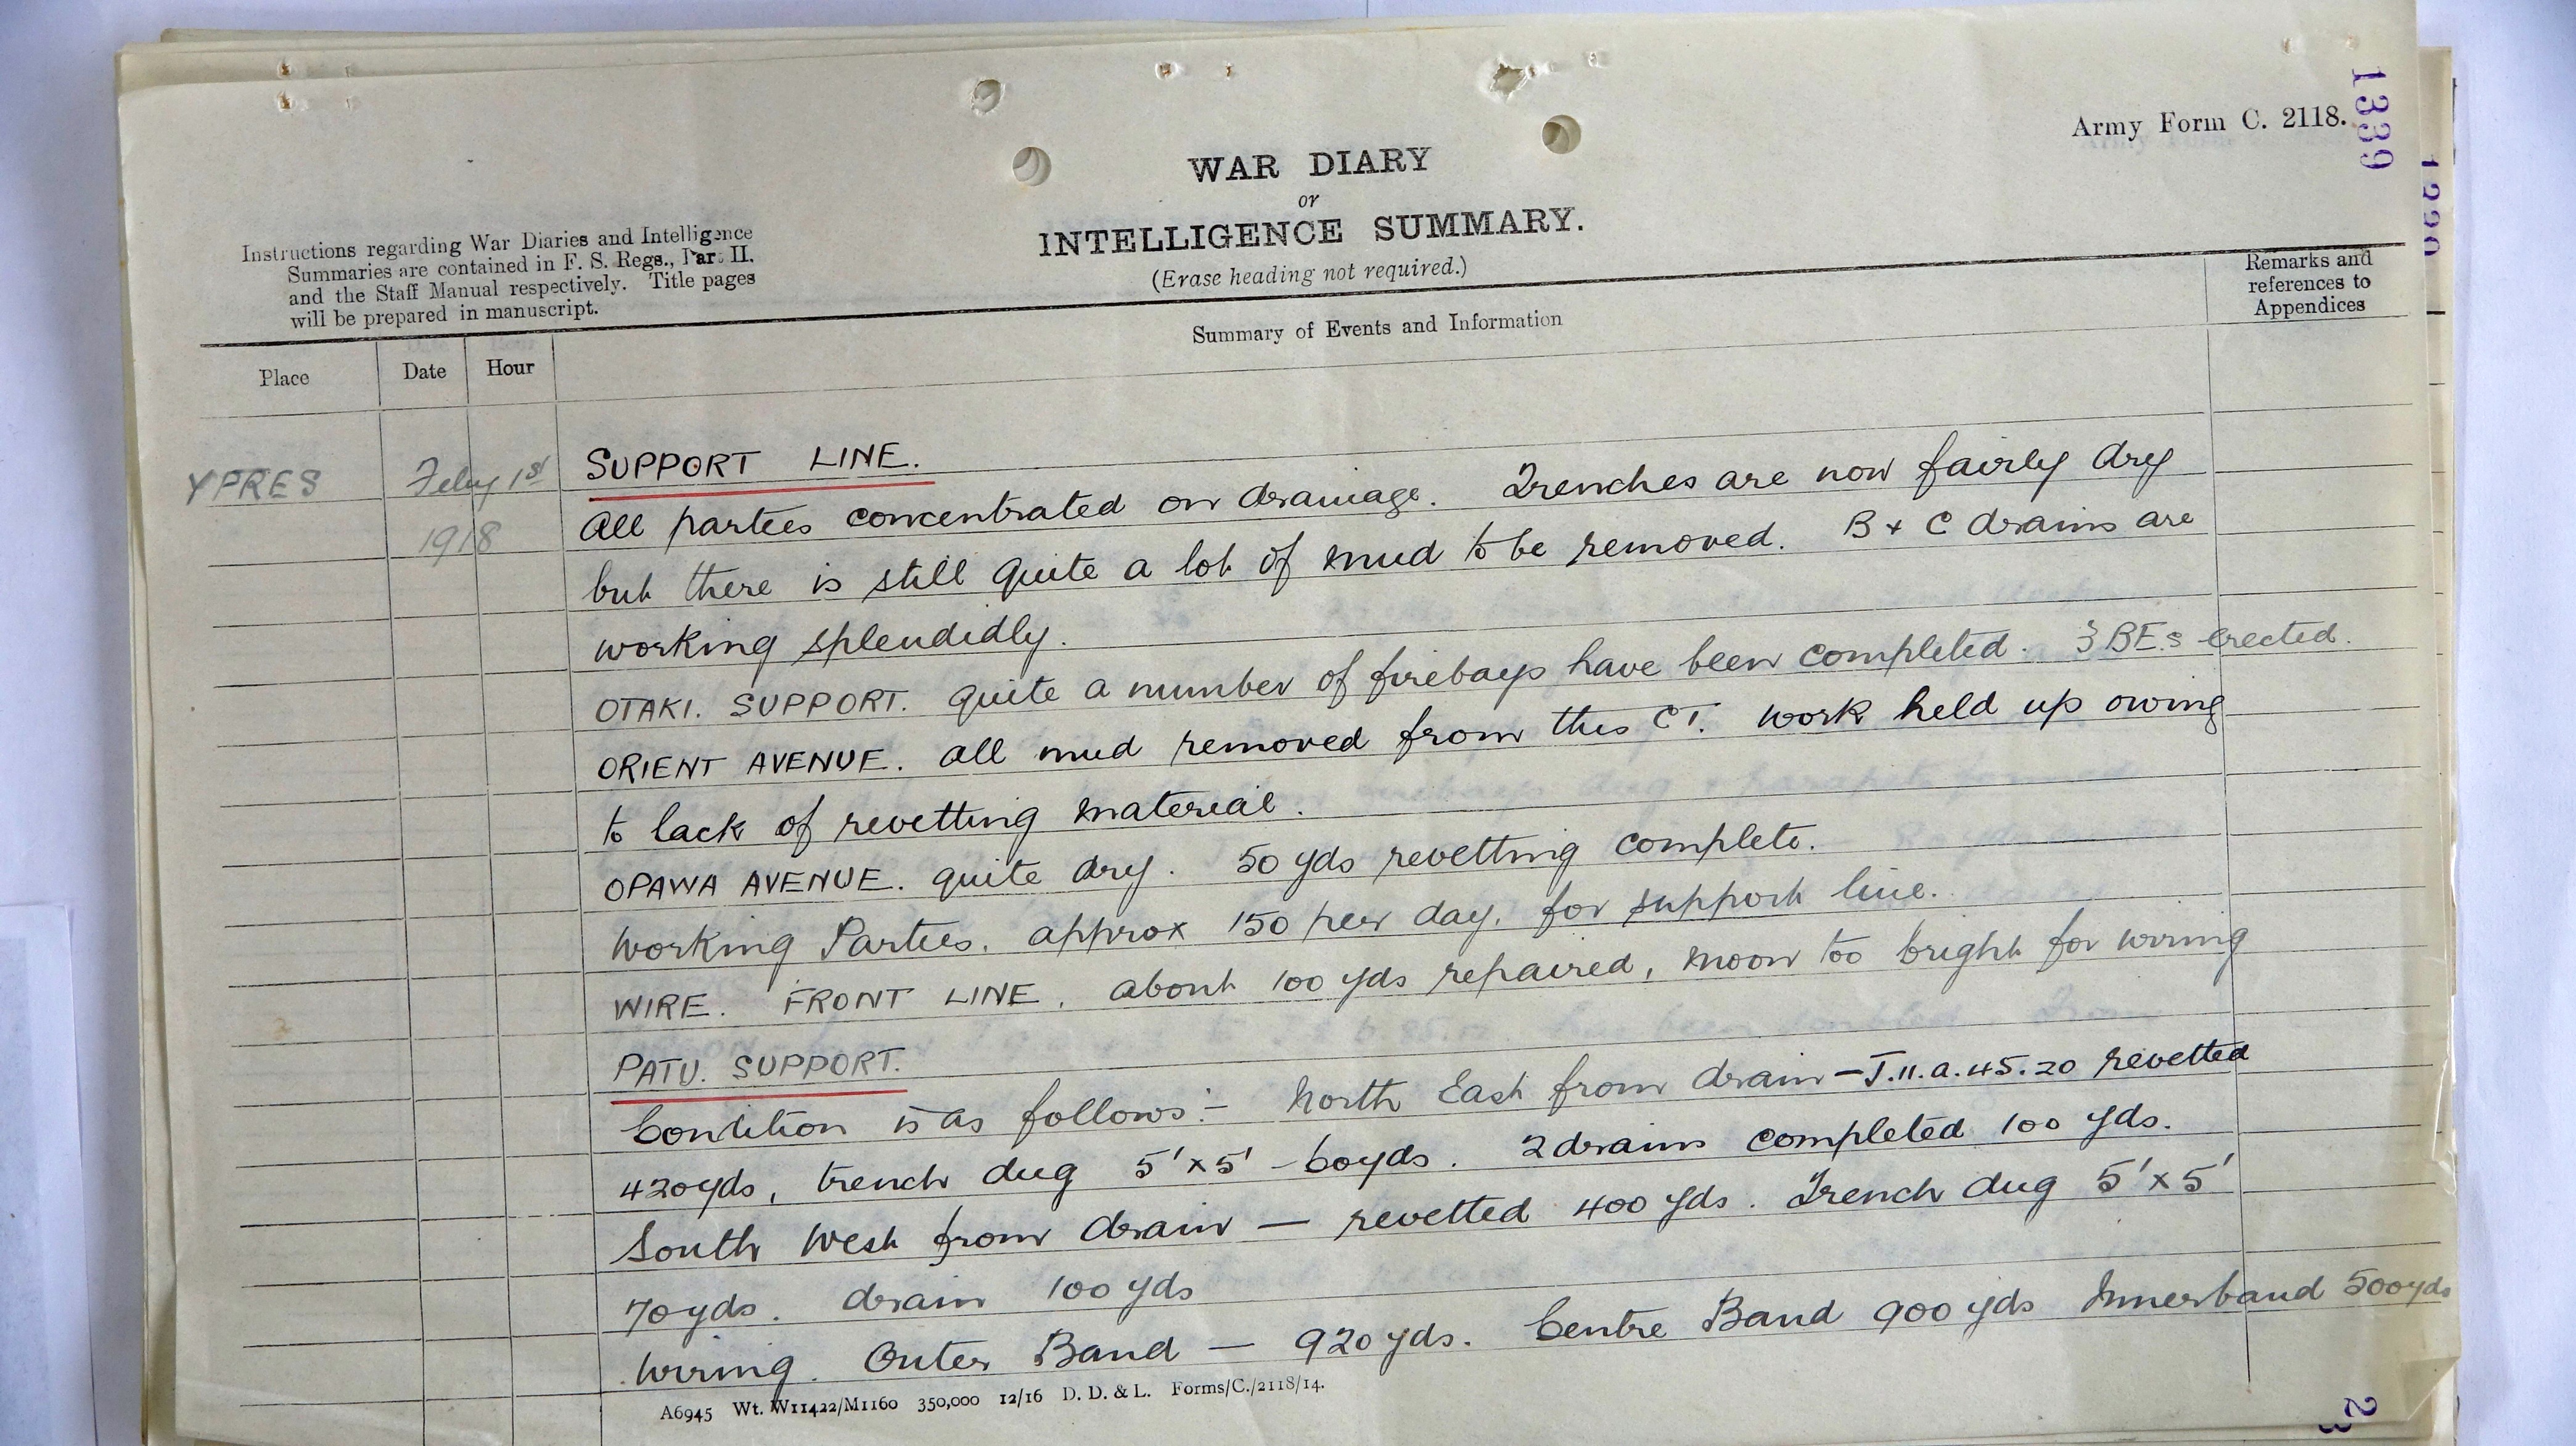 1339
Army Form C. 2118.
WAR DIARY
or
INTELLIGENCE SUMMARY.
(Erase heading not required.)
Instructions regarding War Diaries and Intelligence
Summaries are contained in F. S. Regs., Part II.
and the Staff Manual respectively. Title pages
will be prepared in manuscript.
Remarks and
references to
Appendices
Summary of Events and Information
Place Date Hour
YPRES Feby 1st SUPPORT LINE.
1918 All parties concentrated on drainage. Trenches are now fairly dry
but there is still quite a lot of mud to be removed. B + C drains are
working splendidly.
OTAKI. SUPPORT. quite a number of firebays have been completed. 3 BE.s erected.
ORIENT AVENUE. all mud removed from this CT. work held up owing
to lack of revetting material.
OPAWA AVENUE. quite dry. 50 yds revetting complete.
Working Parties. approx 150 per day. for support line.
WIRE. FRONT LINE. about 100 yds repaired, moon too bright for wiring
PATU. SUPPORT.
Condition is as follows:- North East from drain — J.11.a.45.20 revetted
420yds, trench dug 5'x5' - 60yds. 2 drains completed 100 yds.
South West from drain — revetted 400 yds. Trench dug 5'x5'
70yds. drain 100 yds
Wiring. Outer Band — 920 yds. Centre Band 900 yds Innerband 500yds
A6945 Wt. W11422/M1160 350,000 12/16 D. D. & L. Forms/C./2118/14.